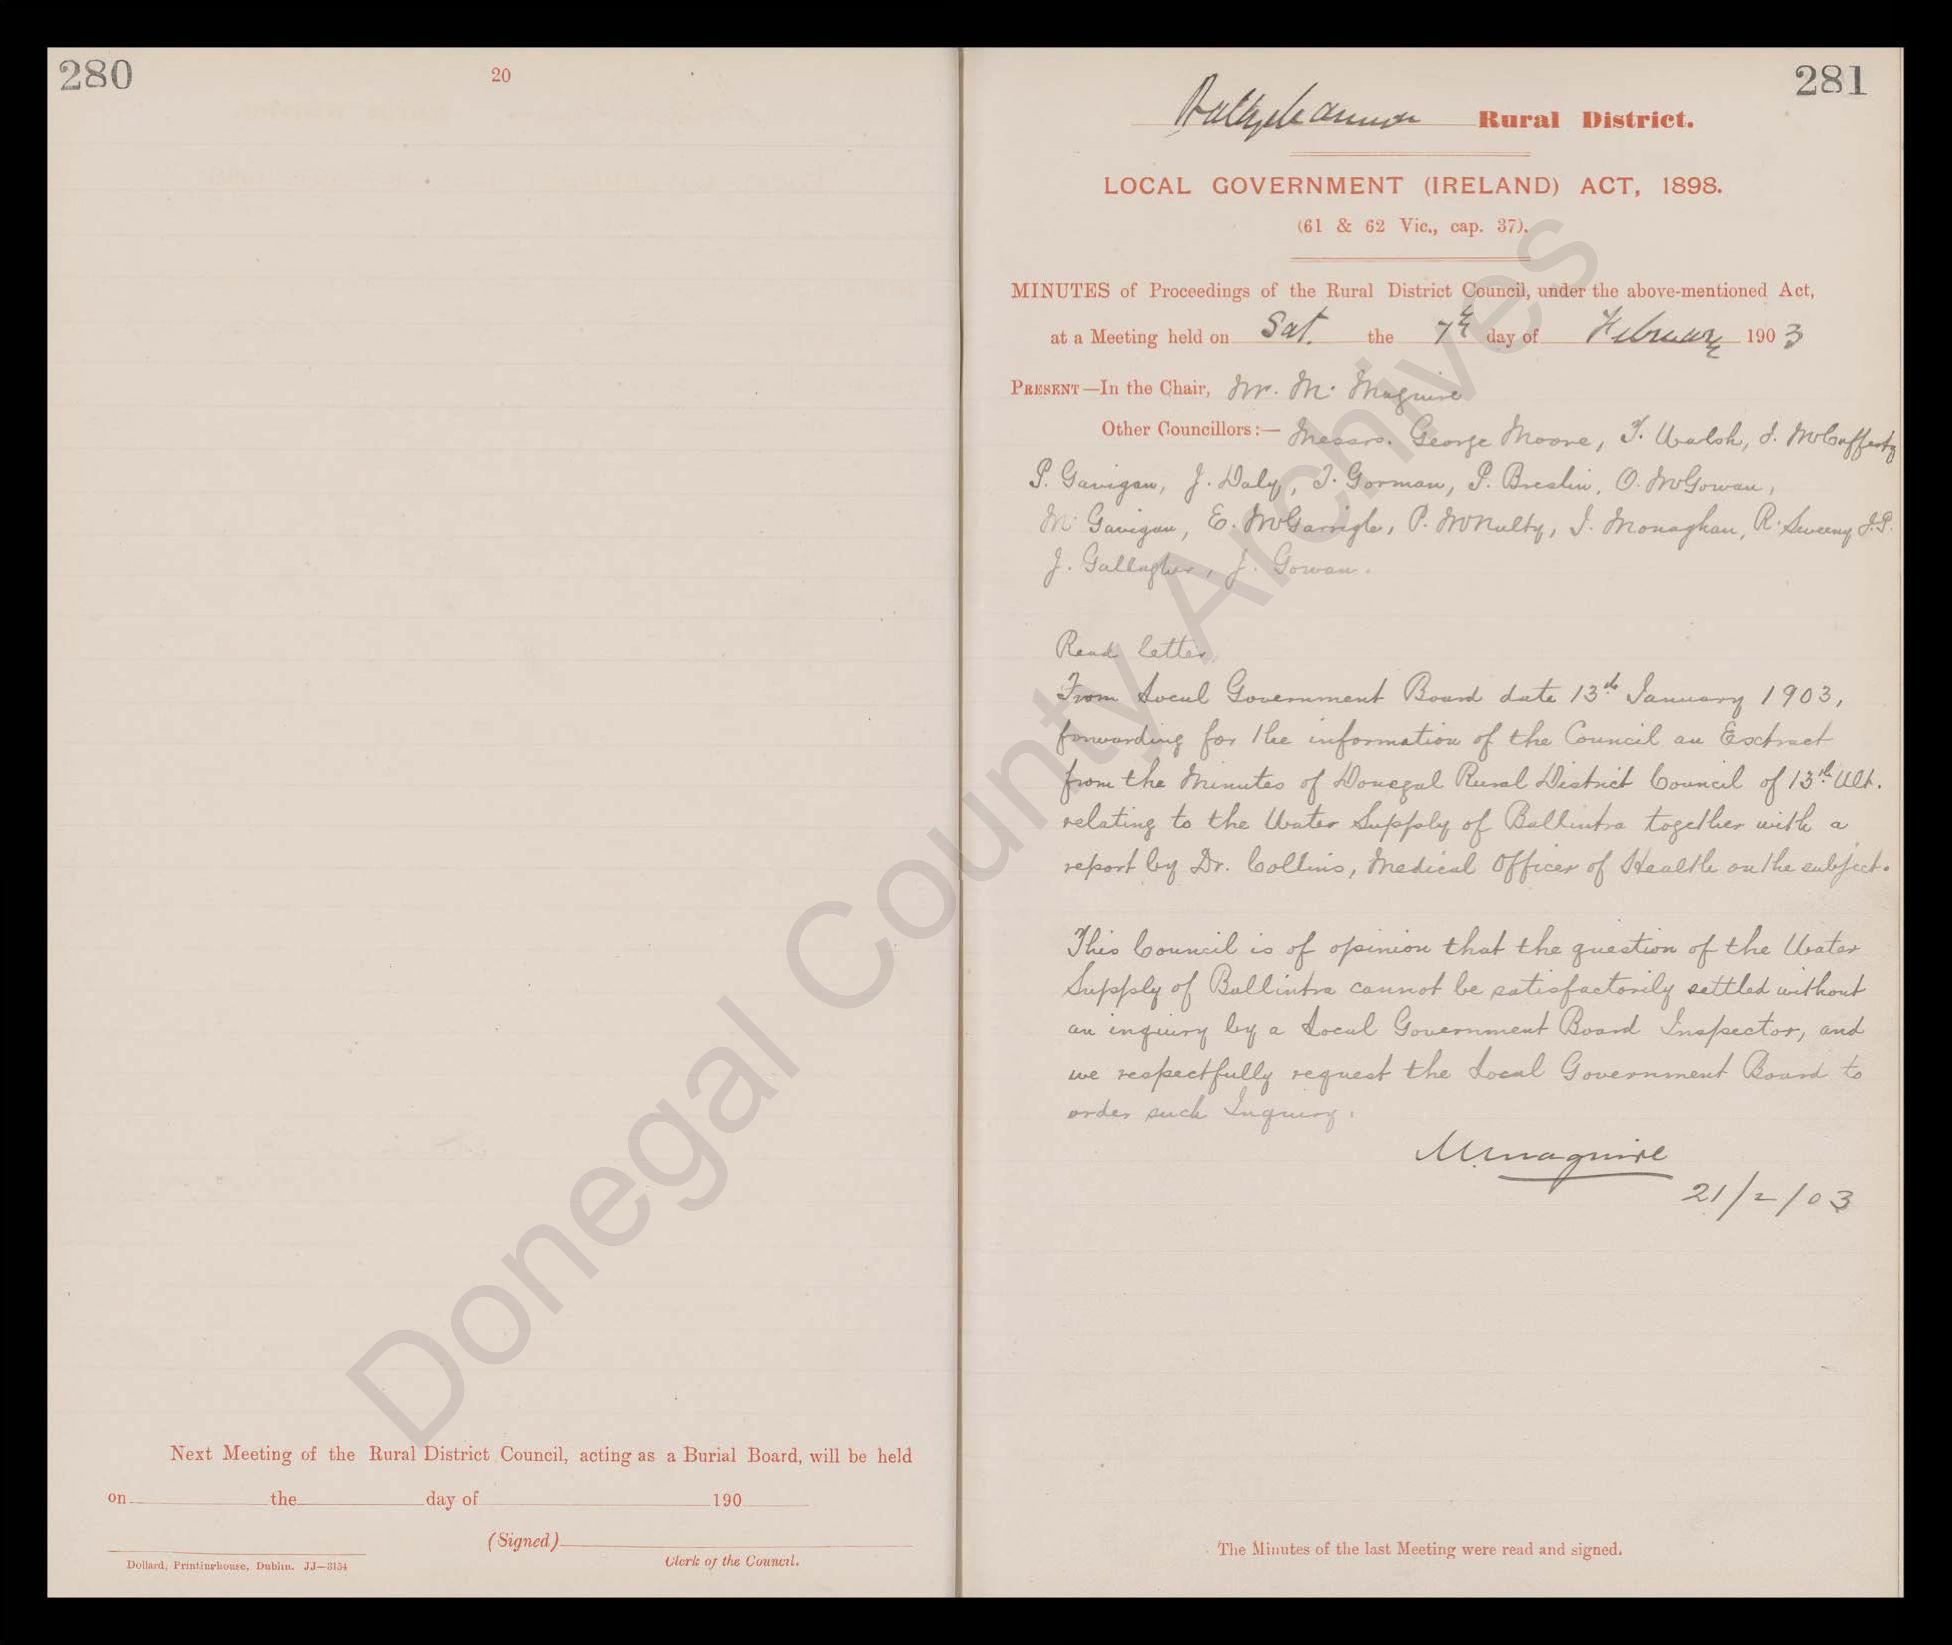 280
20
Next Meeting of the Rural District Council, acting as a Burial Board, will be held
on the day of 190
(Signed)
Clerk of the Council.
Dollard, Printinghouse, Dublin. JJ—3154
281
Ballyshannon Rural District.
LOCAL GOVERNMENT (IRELAND) ACT, 1898.
(61 & 62 Vic., cap. 37).
MINUTES of Proceedings of the Rural District Council, under the above-mentioned Act,
at a Meeting held on Sat. the 7th day of February 1903
PRESENT—In the Chair, Mr. M. Maguire
Other Councillors:— Messrs. George Moore, T. Walsh, J. McCafferty
P. Gavigan, J. Daly, T. Gorman, P. Breslin, O. McGowan,
M. Gavigan, E. McGarrigle, P. McNulty, J. Monaghan, R. Sweeny J.P.
J. Gallagher, J. Gowan.
Read letter
From Local Government Board date 13th January 1903,
forwarding for the information of the Council an Extract
from the Minutes of Donegal Rural District Council of 13th Ult.
relating to the Water Supply of Ballintra together with a
report by Dr. Collins, Medical Officer of Health on the subject.
This Council is of opinion that the question of the Water
Supply of Ballintra cannot be satisfactorily settled without
an inquiry by a Local Government Board Inspector, and
we respectfully request the Local Government Board to
order such Inquiry.
M Maguire
21/2/03
The Minutes of the last Meeting were read and signed.
Donegal County Archives